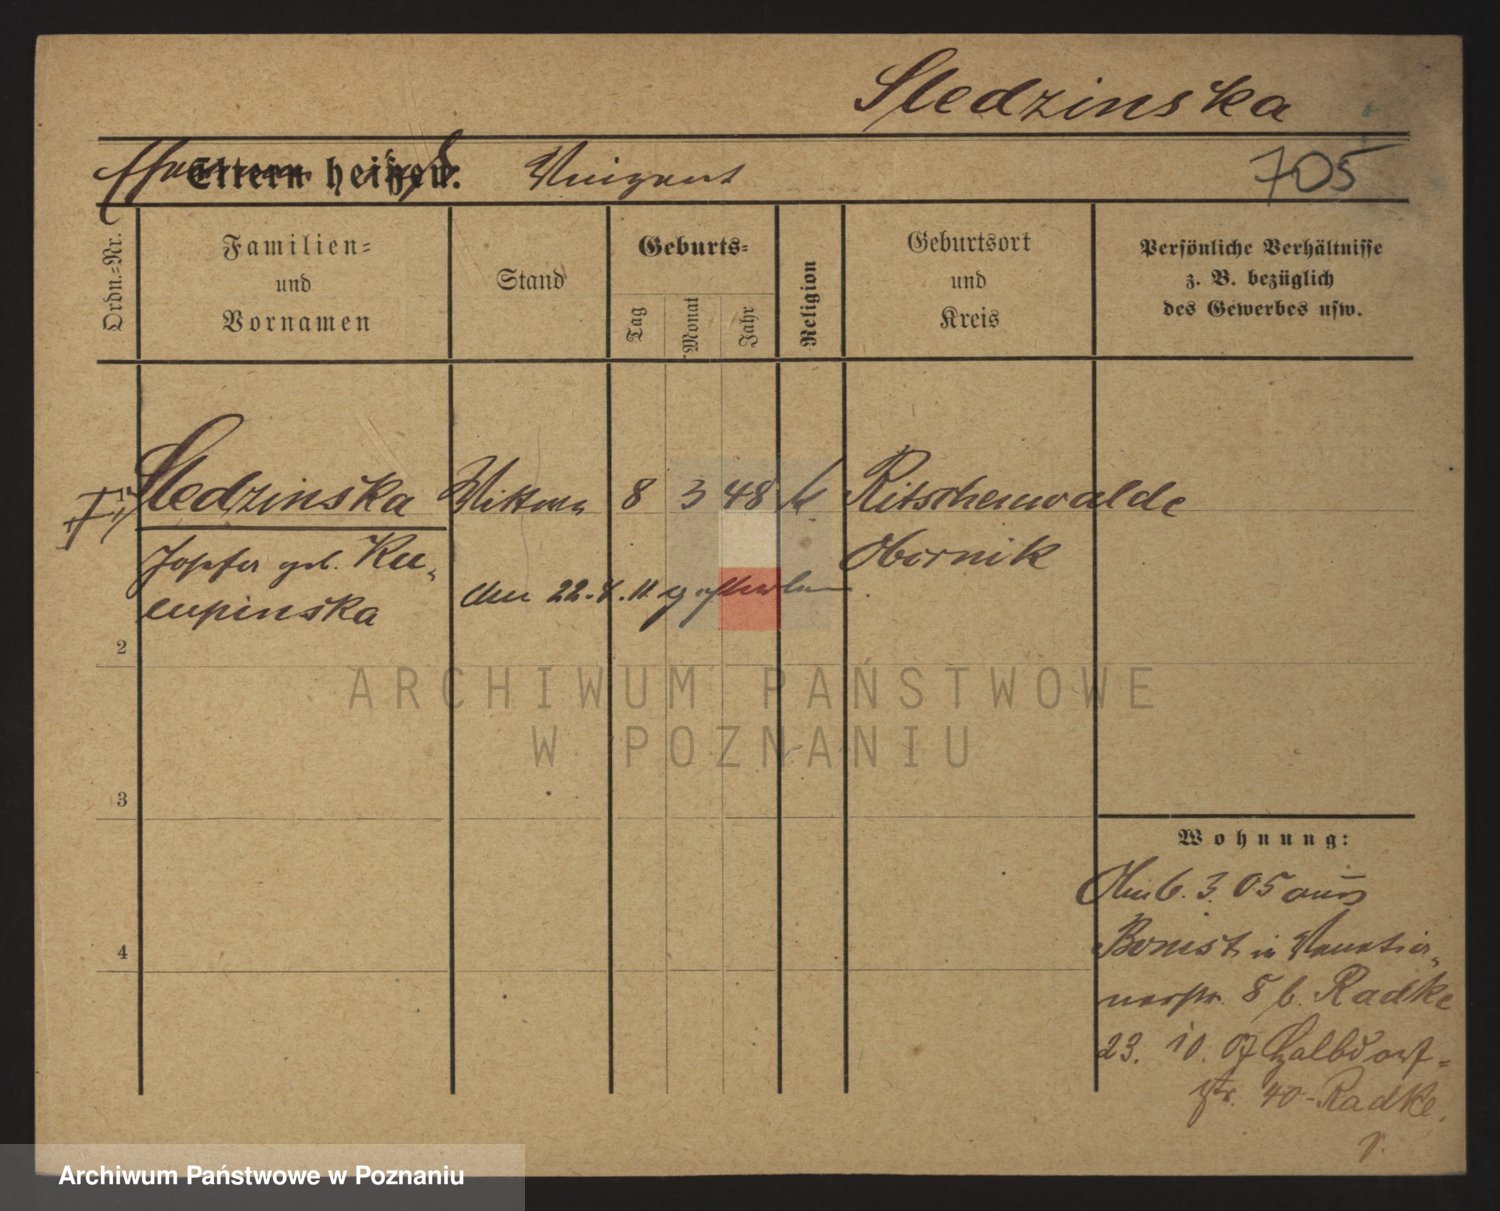 Sledzinska
Eltern heißen: Vinzent
705
Ordn.=Nr.
Familien=
und
Vornamen
Stand
Geburts=
Tag
Monat
Jahr
Religion
Geburtsort
und
Kreis
Persönliche Verhältnisse
z. B. bezüglich
des Gewerbes usw.
1 Sledzinska 8 3 48 k Ritschenwalde
geb. Ku-
Obornik
lupinska
den 22. 4. 11 gestorben
2
3
4
Wohnung:
6. 3. 05 aus
Bomst in
8 b. Radke
23. 10. 07 Halbdorf-
str. 40 - Radke.
ARCHIWUM PAŃSTWOWE
W POZNANIU
Archiwum Państwowe w Poznaniu